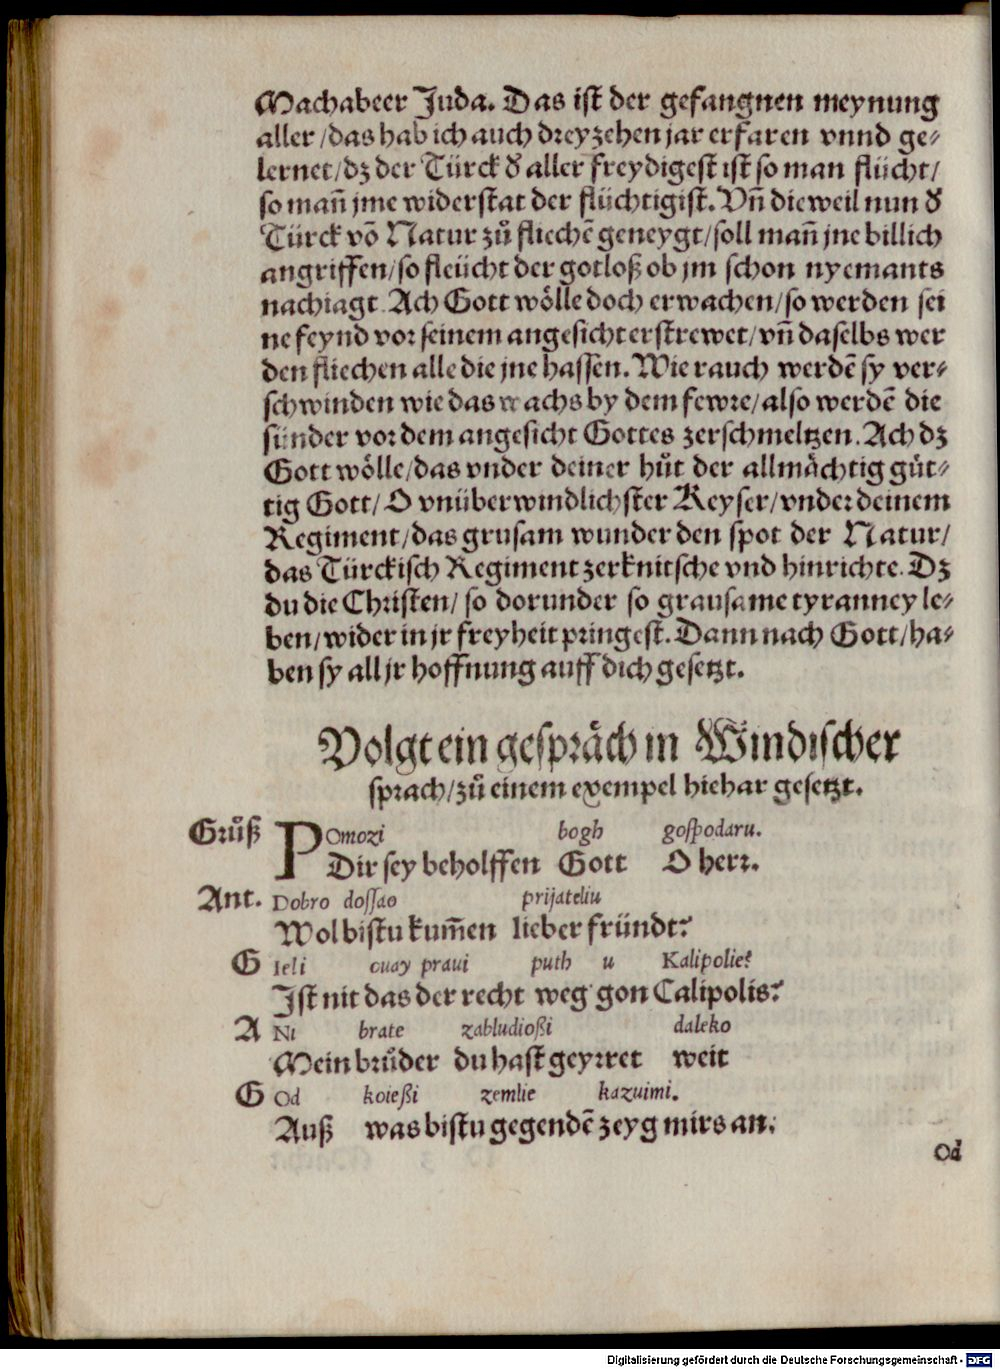 Machabeer Juda. Das ist der gefangnen meynung
aller/das hab ich auch dreyzehen jar erfaren vnnd ge-
lernet/dz der Türck d̕ aller freydigest ist so man flücht/
so mañ jme widerstat der flüchtigist. Vñ dieweil nun d̕
Türck vō Natur zů fliechē geneygt/soll mañ jne billich
angriffen/so fleücht der gotloß ob jm schon nyemants
nachiagt. Ach Gott wölle doch erwachen/so werden sei
ne feynd vor seinem angesicht erstrewet/vñ daselbs wer
den fliechen alle die jne hassen. Wie rauch werdē sy ver-
schwinden wie das wachs by dem fewre/also werdē die
sünder vor dem angesicht Gottes zerschmeltzen. Ach dz
Gott wölle/das vnder deiner hůt der allmächtig güt-
tig Gott/O vnüberwindlichster Keyser/vnder deinem
Regiment/das grusam wunder den spot der Natur/
das Türckisch Regiment zerknitsche vnd hinrichte. Dz
du die Christen/ so dorunder so grausame tyranney le-
ben/wider in jr freyheit pringest. Dann nach Gott/ha-
ben sy all jr hoffnung auff dich gesetzt.
Volgt ein gespräch in Windischer
sprach/zů einem exempel hiehar gesetzt.
Grůß Pomozi bogh gospodaru.
Dir sey beholffen Gott O herr.
Ant. Dobro dossao prijateliu
Wol bistu kum̄en lieber fründt?
G Ieli ouay praui puth u Kalipolie?
Jst nit das der recht weg gon Calipolis?
A Ni brate zabludioßi daleko
Mein brůder du hast geyrret weit
G Od koießi zemlie kazuimi.
Auß was bistu gegendē zeyg mirs an.
Od
Digitalisierung gefördert durch die Deutsche Forschungsgemeinschaft - DFG